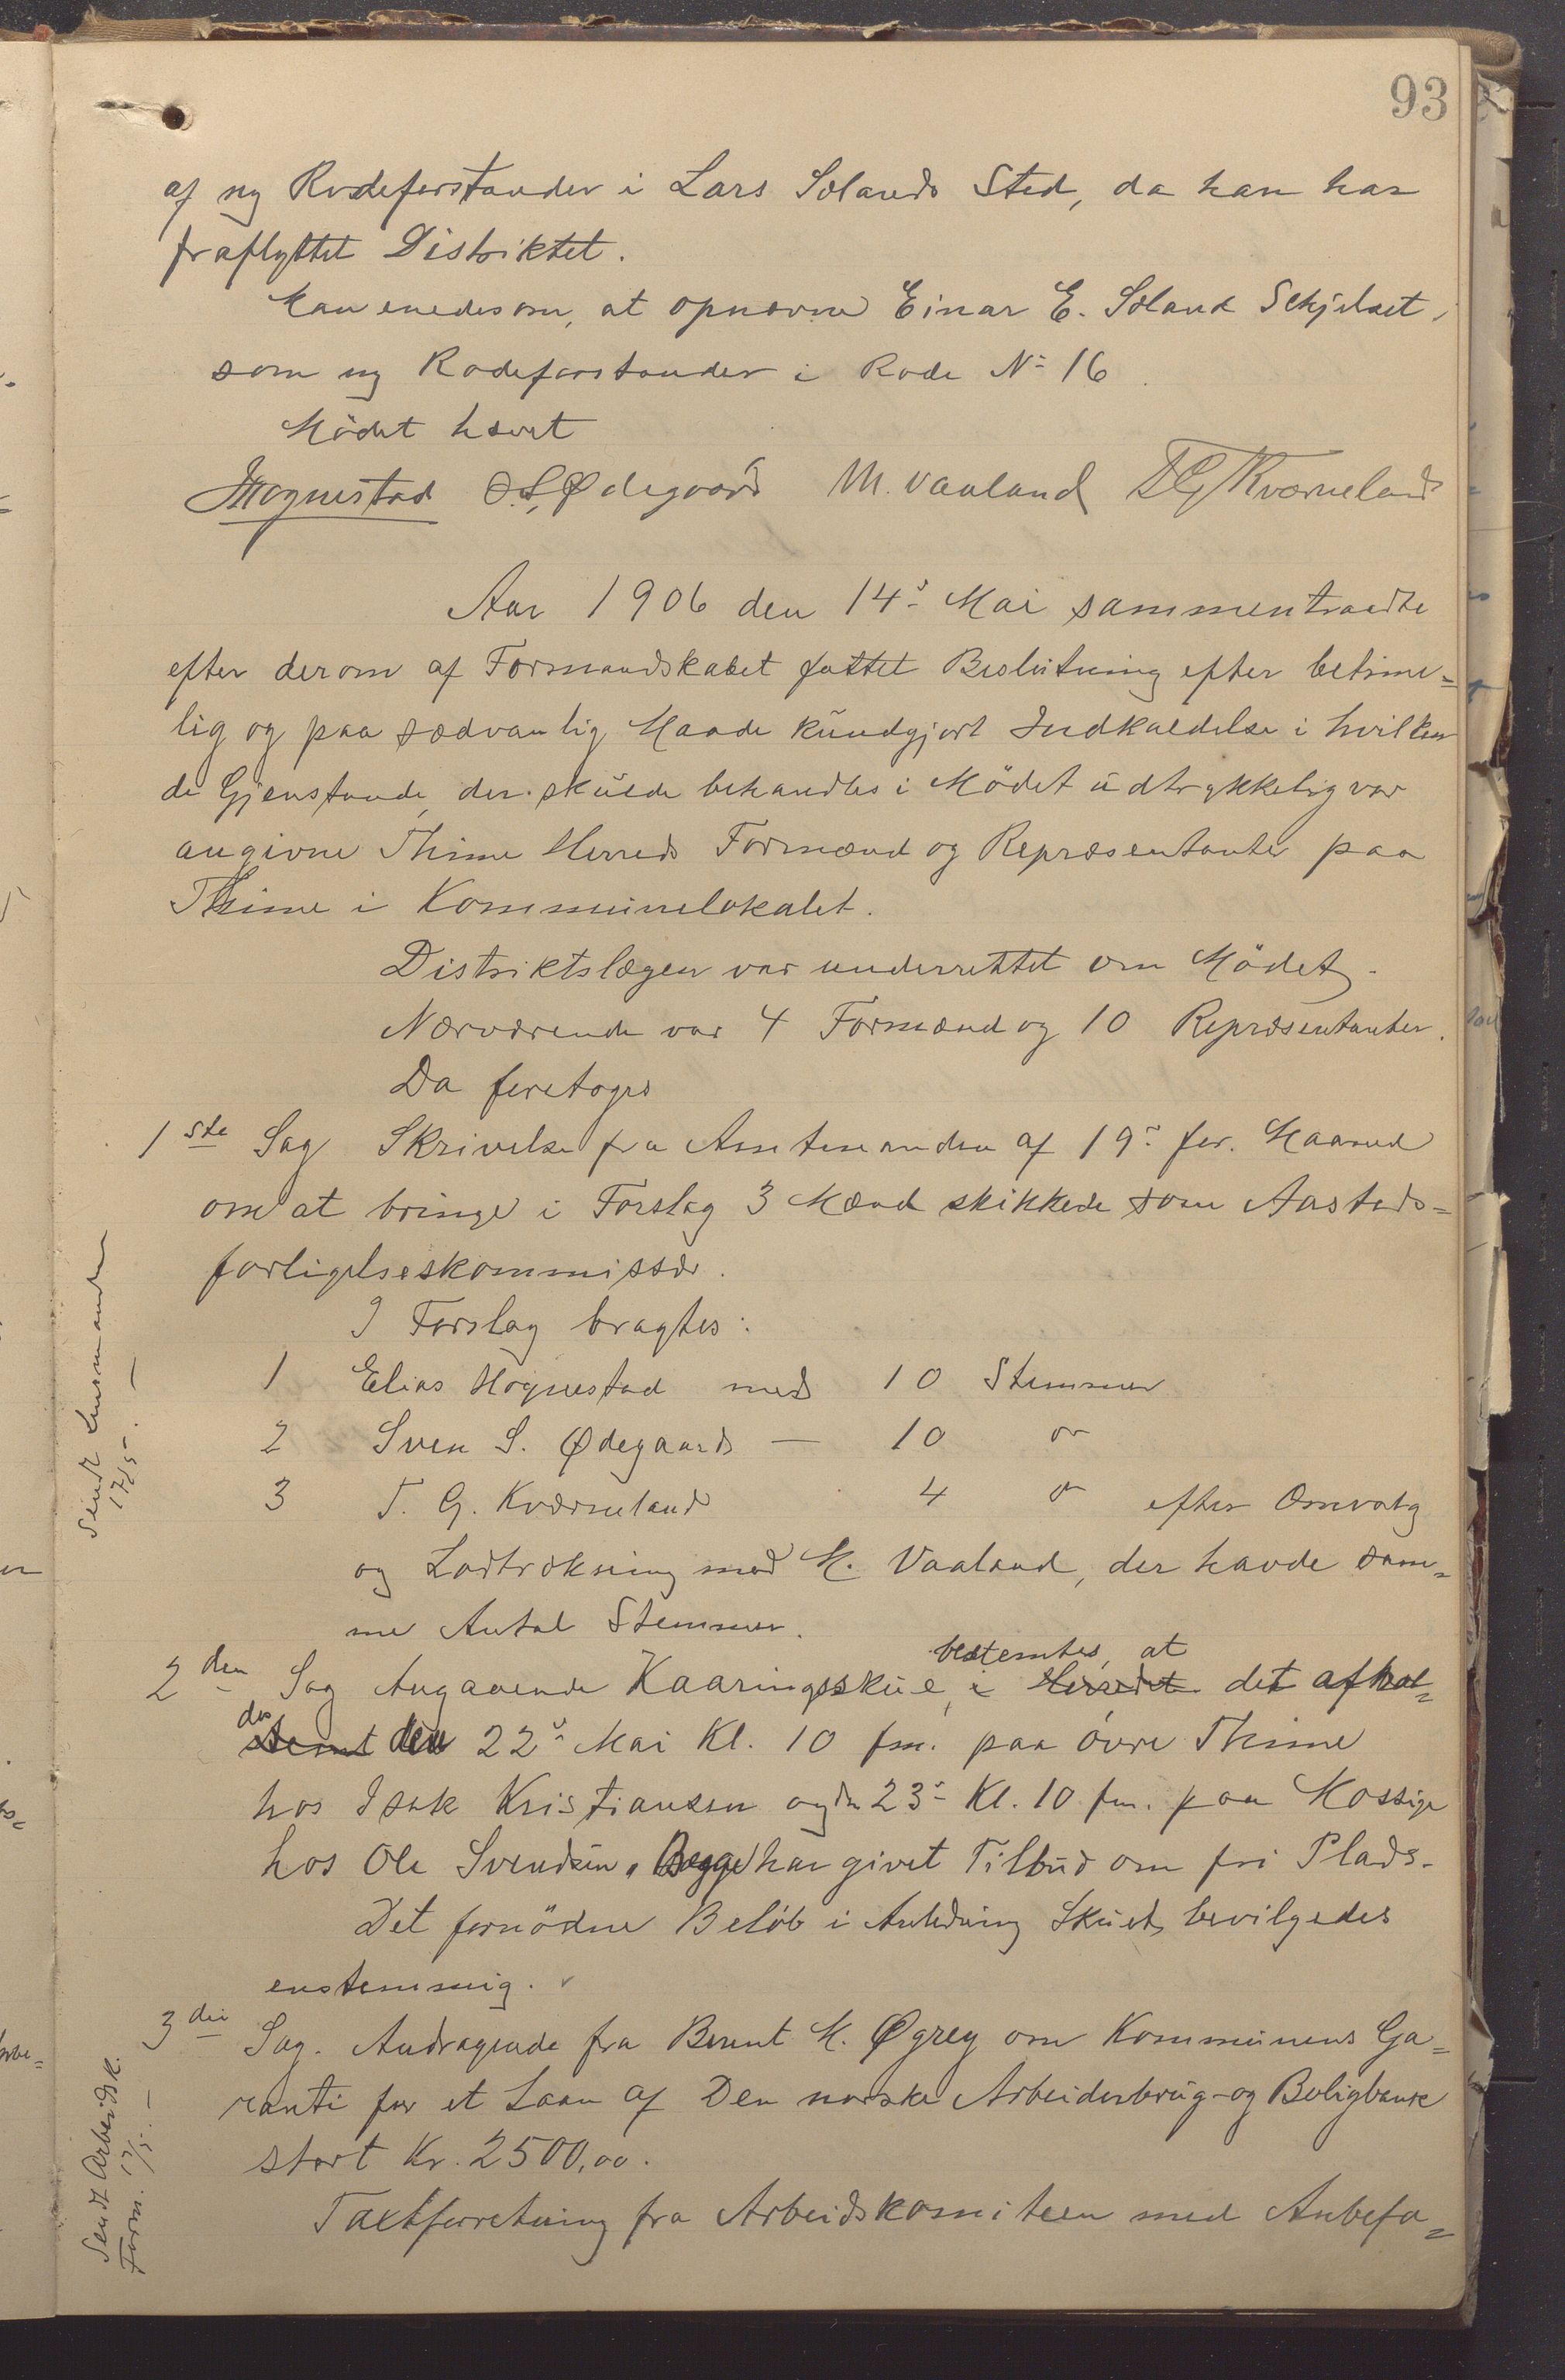 93
af ny Rodeforstander i Lars Sølands Sted, da han har
fraflyttet Distriktet.
Man enedes om, at opnævne Einar E. Søland Skjelset,
som ny Rodeforstander i Rode No 16
Mödet hævet
Hognestad S. S. Ødegaard M. Vaaland T G Kværneland
Aar 1906 den 14de Mai sammentraadte
efter derom af Formandskabet fattet Beslutning efter betime=
lig og paa sædvanlig Maade kundgjort Indkaldelse i hvilken
de Gjenstande, der skulde behandles i Mödet udtrykkelig var
angivne Thime Herreds Formænd og Repræsentanter paa
Thime i Kommunelokalet.
Distriktslægen var underrettet om Mödet.
Nærværende var 4 Formænd og 10 Repræsentanter.
Da foretoges
1ste Sag Skrivelse fra Amtmanden af 19de for. Maaned
om at bringe i Forslag 3 Mænd skikkede som Aasteds=
forligelseskommissær.
I Forslag bragtes:
1 Elias Hognestad med 10 Stemmer
2 Sven S. Ødegaard — 10 "
3 T. G. Kværneland 4 " efter Omvalg
og Lodtrækning med M. Vaaland, der havde sam=
me Antal Stemmer.
Sendt Lensmanden
17/5. —
2den Sag Angaaende Kaaringsskue, i Herredet bestemtes, at det afhol=
des den 22de Mai Kl. 10 fm. paa övre Thime
hos Isak Kristiansen og den 23de Kl. 10 fm. paa Mossige
hos Ole Svendsen. Begge har givet Tilbud om fri Plads.
Det fornödne Belöb i Anledning Skuet, bevilgedes
enstemmig.
3die Sag. Andragende fra Berent M. Øgrey om Kommunens Ga=
ranti for et Laan af Den norske Arbeiderbrug- og Boligbank
stort Kr. 2500,00.
Taxtforretning fra Arbeidskomiteen med Anbefa=
Sendt Arbeidsk.
Form. 17/5. —